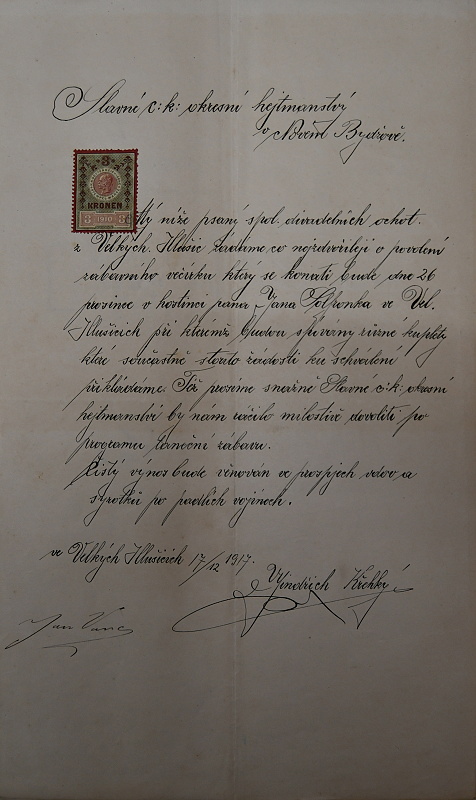 Slavné c: k: okresní hejtmanství
v Novém Bydžově.
3
KRONEN
3 1910 3
My níže psaný spol. divadelních ochot.
z Velkých Hlušic žádáme co nejzdvořileji o povolení
zábavního večírku který se konati bude dne 26
prosince v hostinci pana Jana ve Vel.
Hlušicích při kterémž budou zpívány různé kuplety
ktere součastně stouto žádosti ku schválení
přikládáme. Též prosíme snažně Slavné c: k: okresní
hejtmanství by nám ráčilo milostivě dovoliti po
programu taneční zábavu.
Čistý výnos bude věnován ve prospjech vdov a
syrotků po padlích vojínech.
ve Velkých Hlušicích 17/12 1917.
Jindřich Křehký
Jan